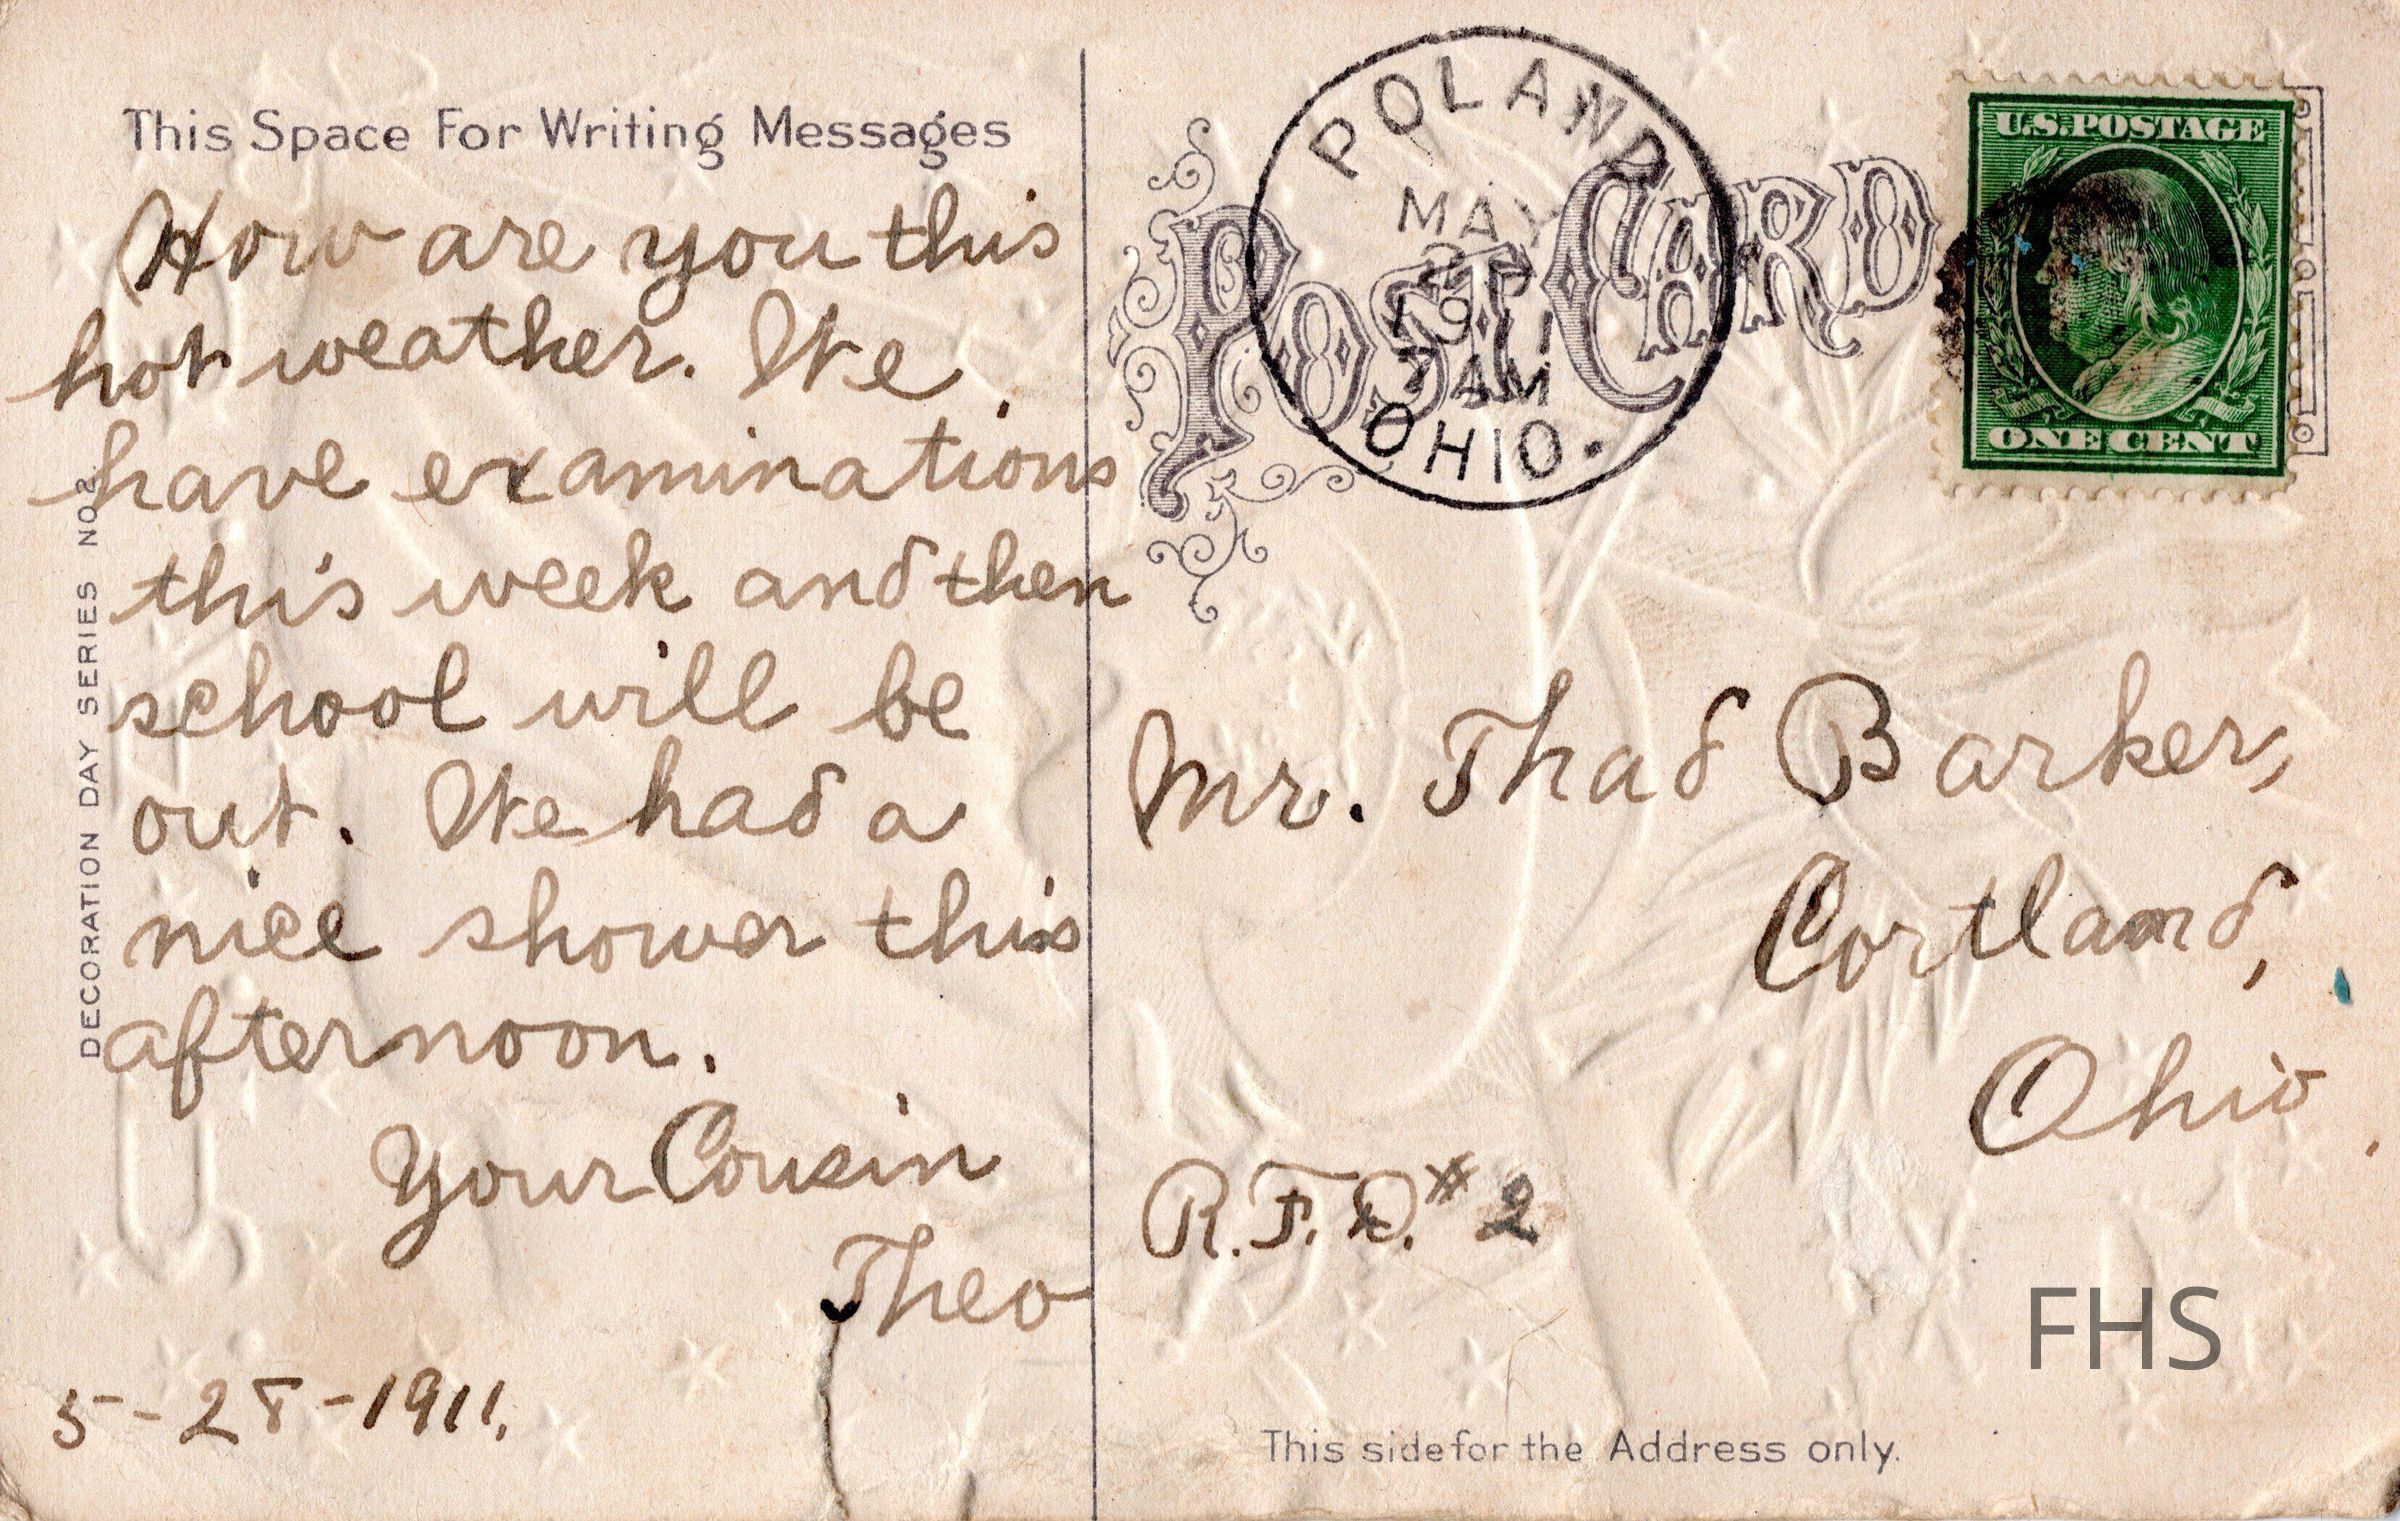 This Space For Writing Messages
How are you this
hot weather. We
have examinations
this week and then
school will be
out. We had a
nice shower this
afternoon.
Your Cousin
Theo
5-28-1911.
DECORATION DAY SERIES NO 2.
POST CARD
POLAND
MAY
1911
7 AM
OHIO.
U.S. POSTAGE
ONE CENT
Mr. Thad Barker,
Cortland,
Ohio.
R.F.D. # 2
FHS
This side for the Address only.